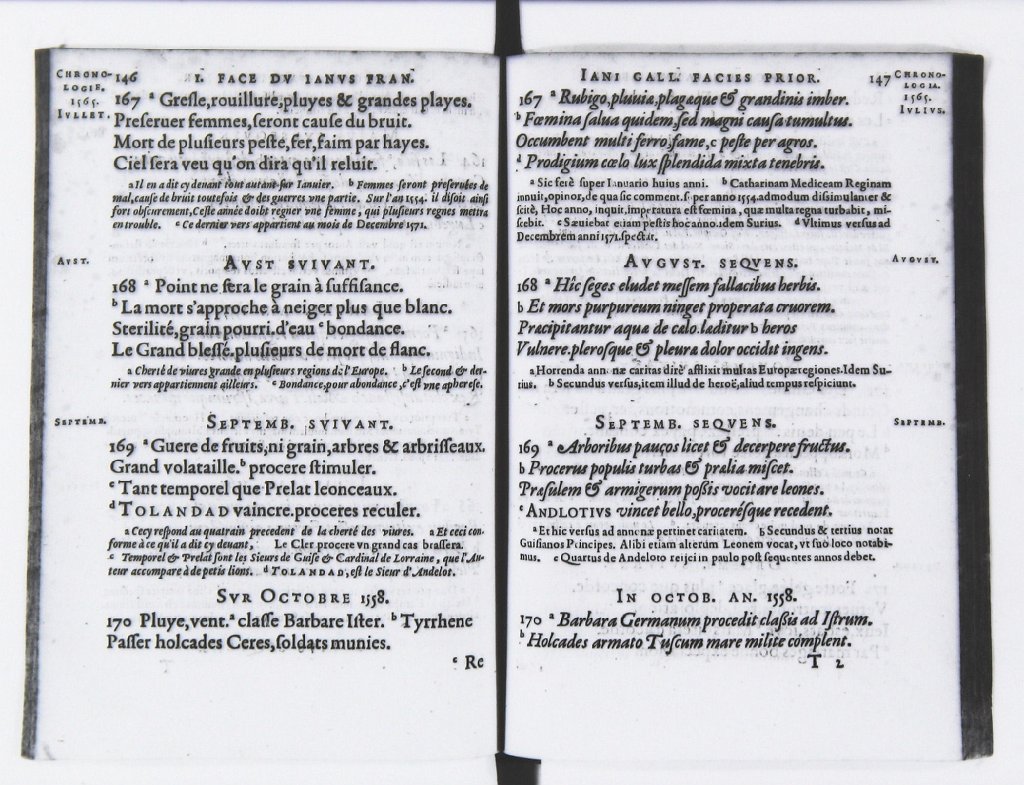 CHRONO-
LOGIE.
1565.
IVLLET.
146 I. FACE DV IANVS FRAN.
167 a Gresle,rouillure,pluyes & grandes playes.
Preseruer femmes,seront cause du bruit.
Mort de plusieurs peste,fer,faim par hayes.
Ciel sera veu qu'on dira qu'il reluit.
a Il en a dit cy deuant tout autant sur Ianuier. b Femmes seront preseruees de
mal,cause de bruit toutefois & des guerres vne partie. Sur l'an 1554. il disoit ainsi
fort obscurement, Ceste année doibt regner vne femme, qui plusieurs regnes mettra
en trouble. c Ce dernier vers appartient au mois de Decembre 1571.
AVST.
AVST SVIVANT.
168 a Point ne sera le grain à suffisance.
b La mort s'approche à neiger plus que blanc.
Sterilité,grain pourri.d'eau c bondance.
Le Grand blessé.plusieurs de mort de flanc.
a Cherté de viures grande en plusieurs regions de l'Europe. b Le second & der-
nier vers appartiennent ailleurs. c Bondance,pour abondance, c'est vne apherese.
SEPTEMB.
SEPTEMB. SVIVANT.
169 a Guere de fruits,ni grain,arbres & arbrisseaux.
Grand volataille. b procere stimuler.
c Tant temporel que Prelat leonceaux.
d TOLANDAD vaincre.proceres reculer.
a Cecy respond au quatrain precedent de la cherté des viures. a Et ceci con-
forme à ce qu'il a dit cy deuant, Le Cler procere vn grand cas brassera.
c Temporel & Prelat sont les Sieurs de Guise & Cardinal de Lorraine, que l'Au-
teur accompare à de petis lions. d TOLANDAD, est le Sieur d'Andelot.
SVR OCTOBRE 1558.
170 Pluye,vent. a classe Barbare Ister. b Tyrrhene
Passer holcades Ceres,soldats munies.
c Re
IANI GALL. FACIES PRIOR. 147
CHRONO-
LOGIA.
1565.
IVLIVS.
167 a Rubigo,pluuia,plagaque & grandinis imber.
b Fœmina salua quidem,sed magni causa tumultus.
Occumbent multi ferro,fame, c peste per agros.
d Prodigium cœlo lux splendida mixta tenebris.
a Sic ferè super Ianuario huius anni. b Catharinam Mediceam Reginam
innuit,opinor,de qua sic comment. s. per anno 1554.admodum dissimulanter &
scitè, Hoc anno, inquit,imperatura est fœmina, quæ multa regna turbabit, mi-
scebit. c Sæuiebat etiam pestis hoc anno.idem Surius. d Vltimus versus ad
Decembrem anni 1571.spectat.
AVGVST.
AVGVST. SEQVENS.
168 a Hic seges eludet messem fallacibus herbis.
b Et mors purpureum ninget properata cruorem.
Præcipitantur aquæ de cælo.læditur b heros
Vulnere.plerosque & pleuræ dolor occidit ingens.
a Horrenda annonæ caritas dirè afflixit multas Europæ regiones. Idem Su-
rius. b Secundus versus,item illud de heroë,aliud tempus respiciunt.
SEPTEMB.
SEPTEMB. SEQVENS.
169 a Arboribus pauços licet & decerpere fructus.
b Procerus populis turbas & prælia miscet.
Præsulem & armigerum possis vocitare leones.
c ANDLOTIVS vincet bello,procerésque recedent.
a Et hic versus ad annonæ pertinet caritatem. b Secundus & tertius notat
Guisianos Principes. Alibi etiam alterum Leonem vocat, vt suo loco notabi-
mus. c Quartus de Andeloto reijci in paulo post sequentes annos debet.
IN OCTOB. AN. 1558.
170 a Barbara Germanum procedit classis ad Istrum.
b Holcades armato Tuscum mare milite complent.
T 2